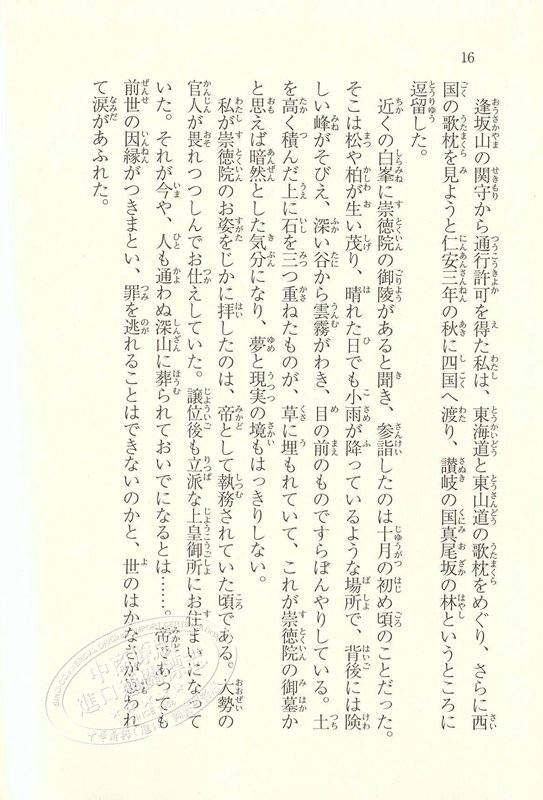 16
逢坂山の関守から通行許可を得た私は、東海道と東山道の歌枕をめぐり、さらに西
国の歌枕を見ようと仁安三年の秋に四国へ渡り、讃岐の国真尾坂の林というところに
逗留した。
近くの白峯に崇徳院の御陵があると聞き、参詣したのは十月の初め頃のことだった。
そこは松や柏が生い茂り、晴れた日でも小雨が降っているような場所で、背後には険
しい峰がそびえ、深い谷から雲霧がわき、目の前のものですらぼんやりしている。土
を高く積んだ上に石を三つ重ねたものが、草に埋もれていて、これが崇徳院の御墓か
と思えば暗然とした気分になり、夢と現実の境もはっきりしない。
私が崇徳院のお姿をじかに拝したのは、帝として執務されていた頃である。大勢の
官人が畏れつつしんでお仕えしていた。譲位後も立派な上皇御所にお住まいになって
いた。それが今や、人も通わぬ深山に葬られておいでになるとは……。帝であっても
前世の因縁がつきまとい、罪を逃れることはできないのかと、世のはかなさが思われ
て涙があふれた。